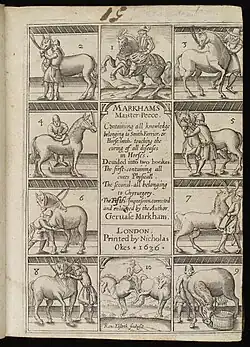 2
1
3
4
5
6
7
8
10
9
MARKHAMS
Maister-Peece.
Containing all knowledge
belonging to Smith, Farrier, or
Horse-leech, touching the
curing of all diseases
in Horses.
Deuided into two bookes
The first containing all
cures Physicall
The second all belonging
to Chyrurgery.
The Fift Impression, corrected
and enlarged by the Author
Geruase Markham.
LONDON.
Printed by Nicholas
Okes • 1636 •
Ren: Elstrack sculpsit